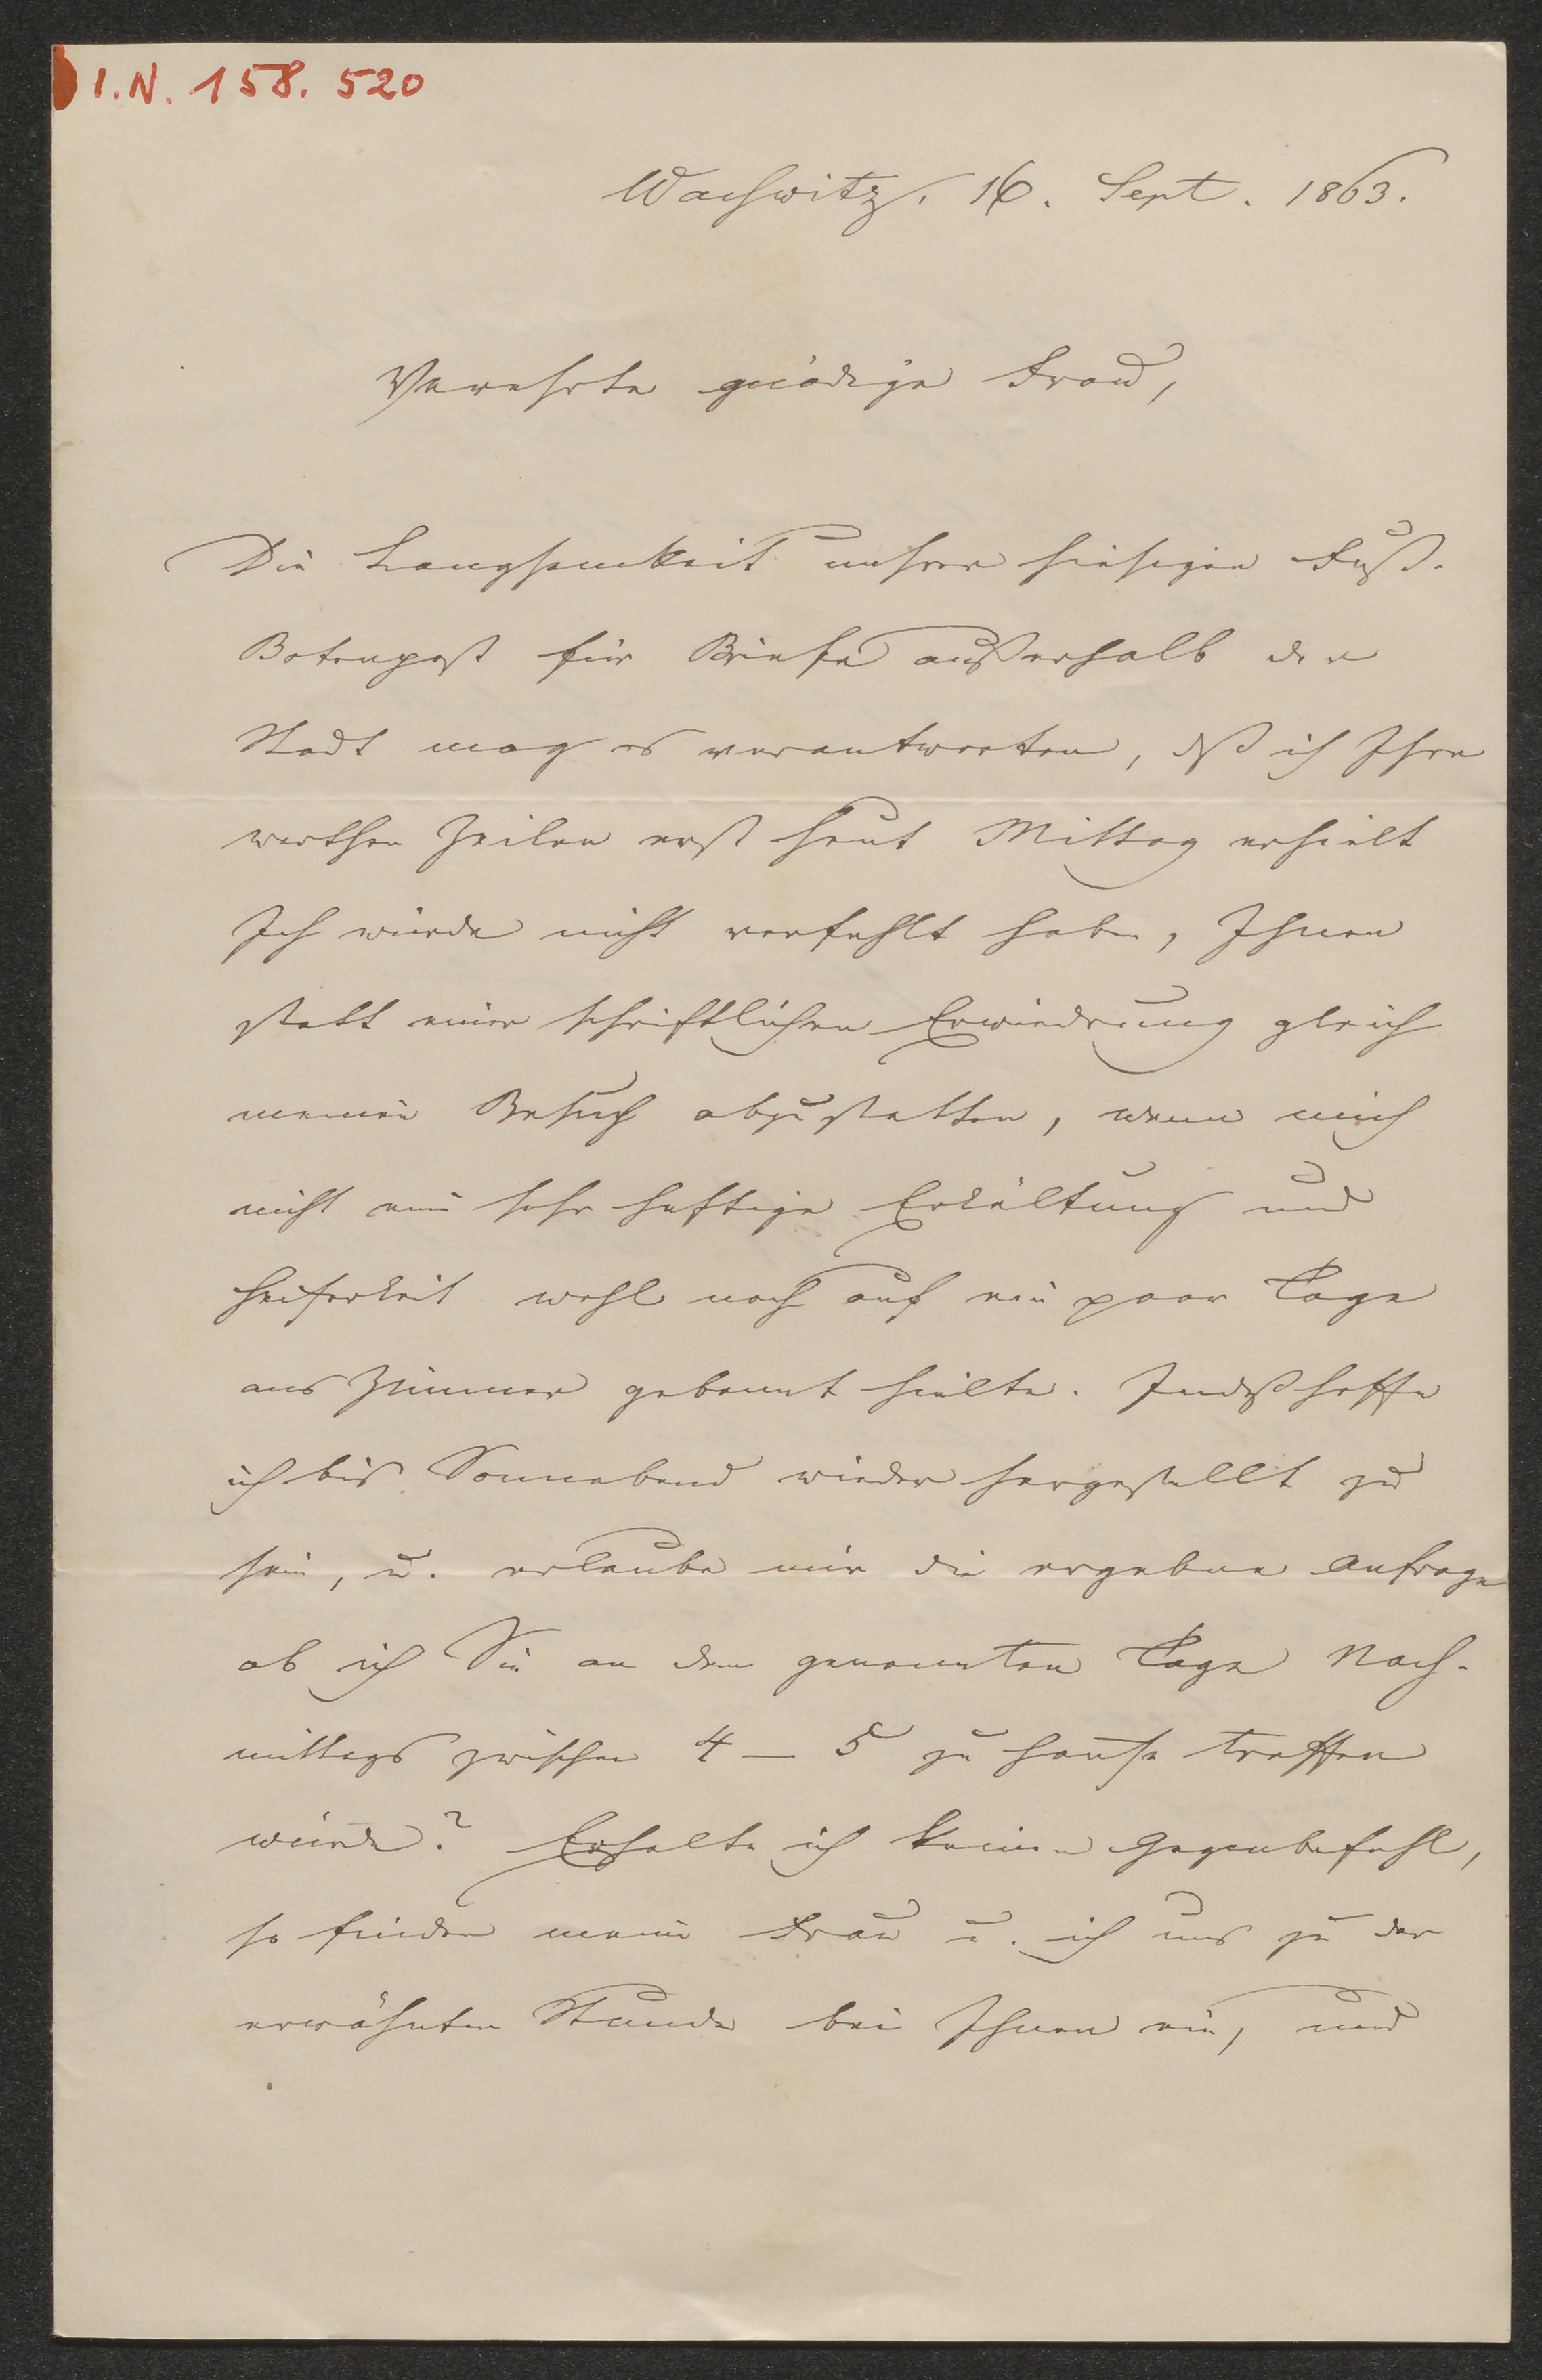 I.N. 158.520
Wachwitz, 16. Sept. 1863.
Verehrte gnädige Frau,
Die Langsamkeit unsrer hiesigen Fuß-
Botenpost für Briefe außerhalb der
Stadt mag es verantworten, dß ich Ihre
werthen Zeilen erst heut Mittag erhielt
Ich würde nicht verfehlt haben, Ihnen
statt einer schriftlichen Erwiedrung gleich
meinen Besuch abzustatten, wenn mich
nicht eine sehr heftige Erkältung und
Heiserkeit wohl noch auf ein paar Tage
ans Zimmer gebannt hielte. Indß hoffe
ich bis Sonnabend wieder hergestellt zu
sein, u. erlaube mir die ergebne Anfrage
ob ich Sie an dem genannten Tage Nach-
mittags zwischen 4 – 5 zu Hause treffen
würde? Erhalte ich keinen Gegenbefehl,
so finden meine Frau u. ich uns zu der
erwähnten Stunde bei Ihnen ein, und